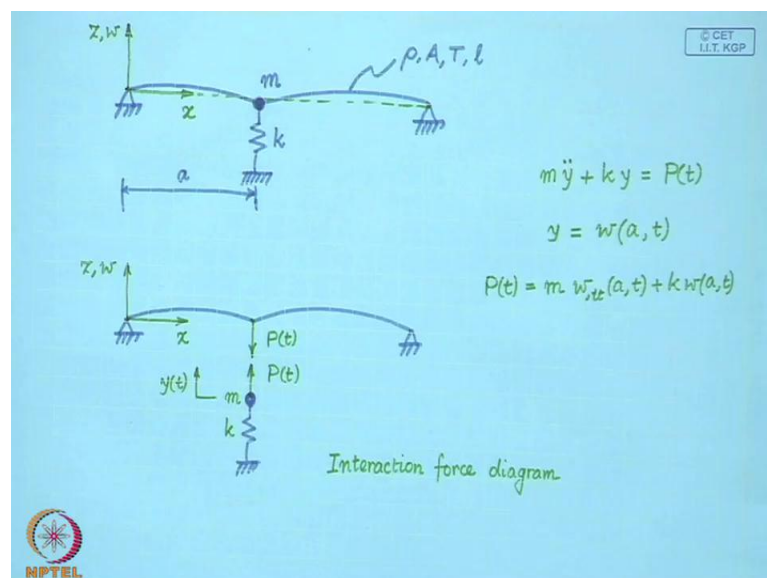 © CET
I.I.T. KGP
z, w
m
ρ, A, T, l
x
k
a
m ÿ + k y = P(t)
y = w(a, t)
P(t) = m w,tt (a, t) + k w(a, t)
z, w
x
P(t)
P(t)
y(t)
m
k
Interaction force diagram
NPTEL